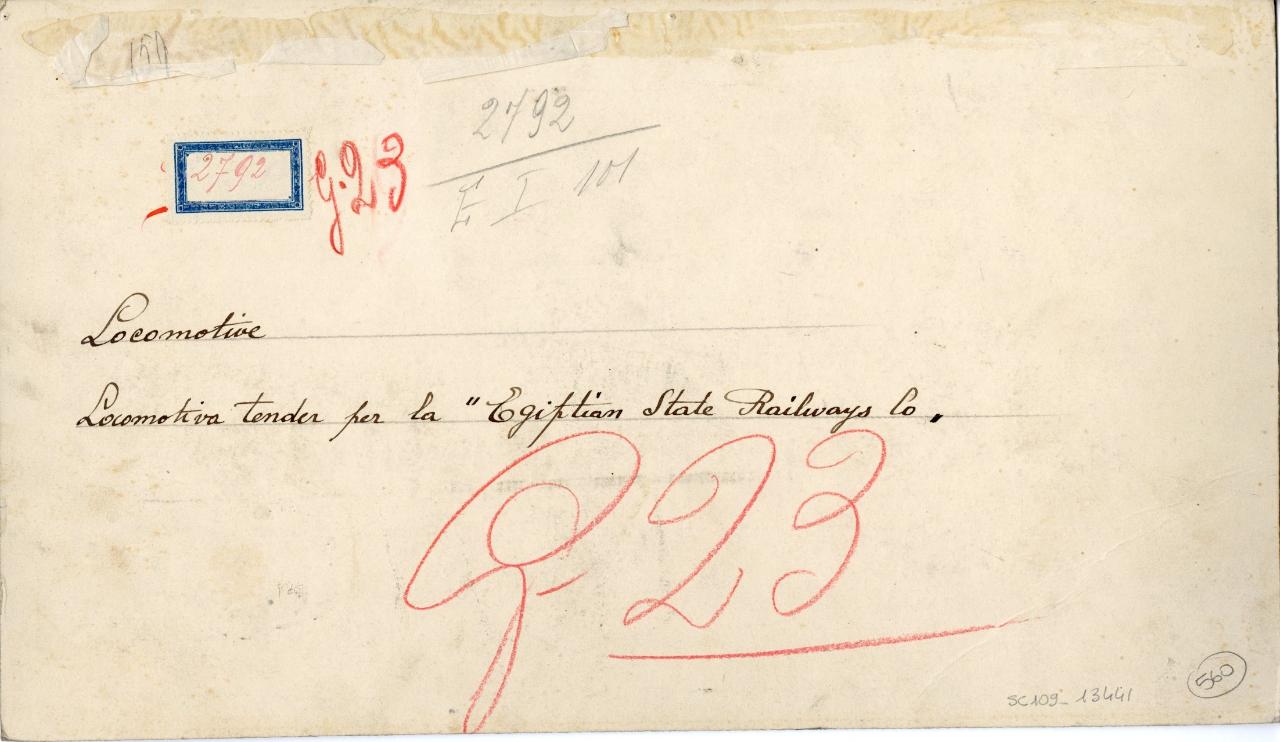 151
2792
E I 101
2792
G. 23
Locomotive
Locomotiva tender per la "Egiptian State Railways Co„
G. 23
SC109_13441
560